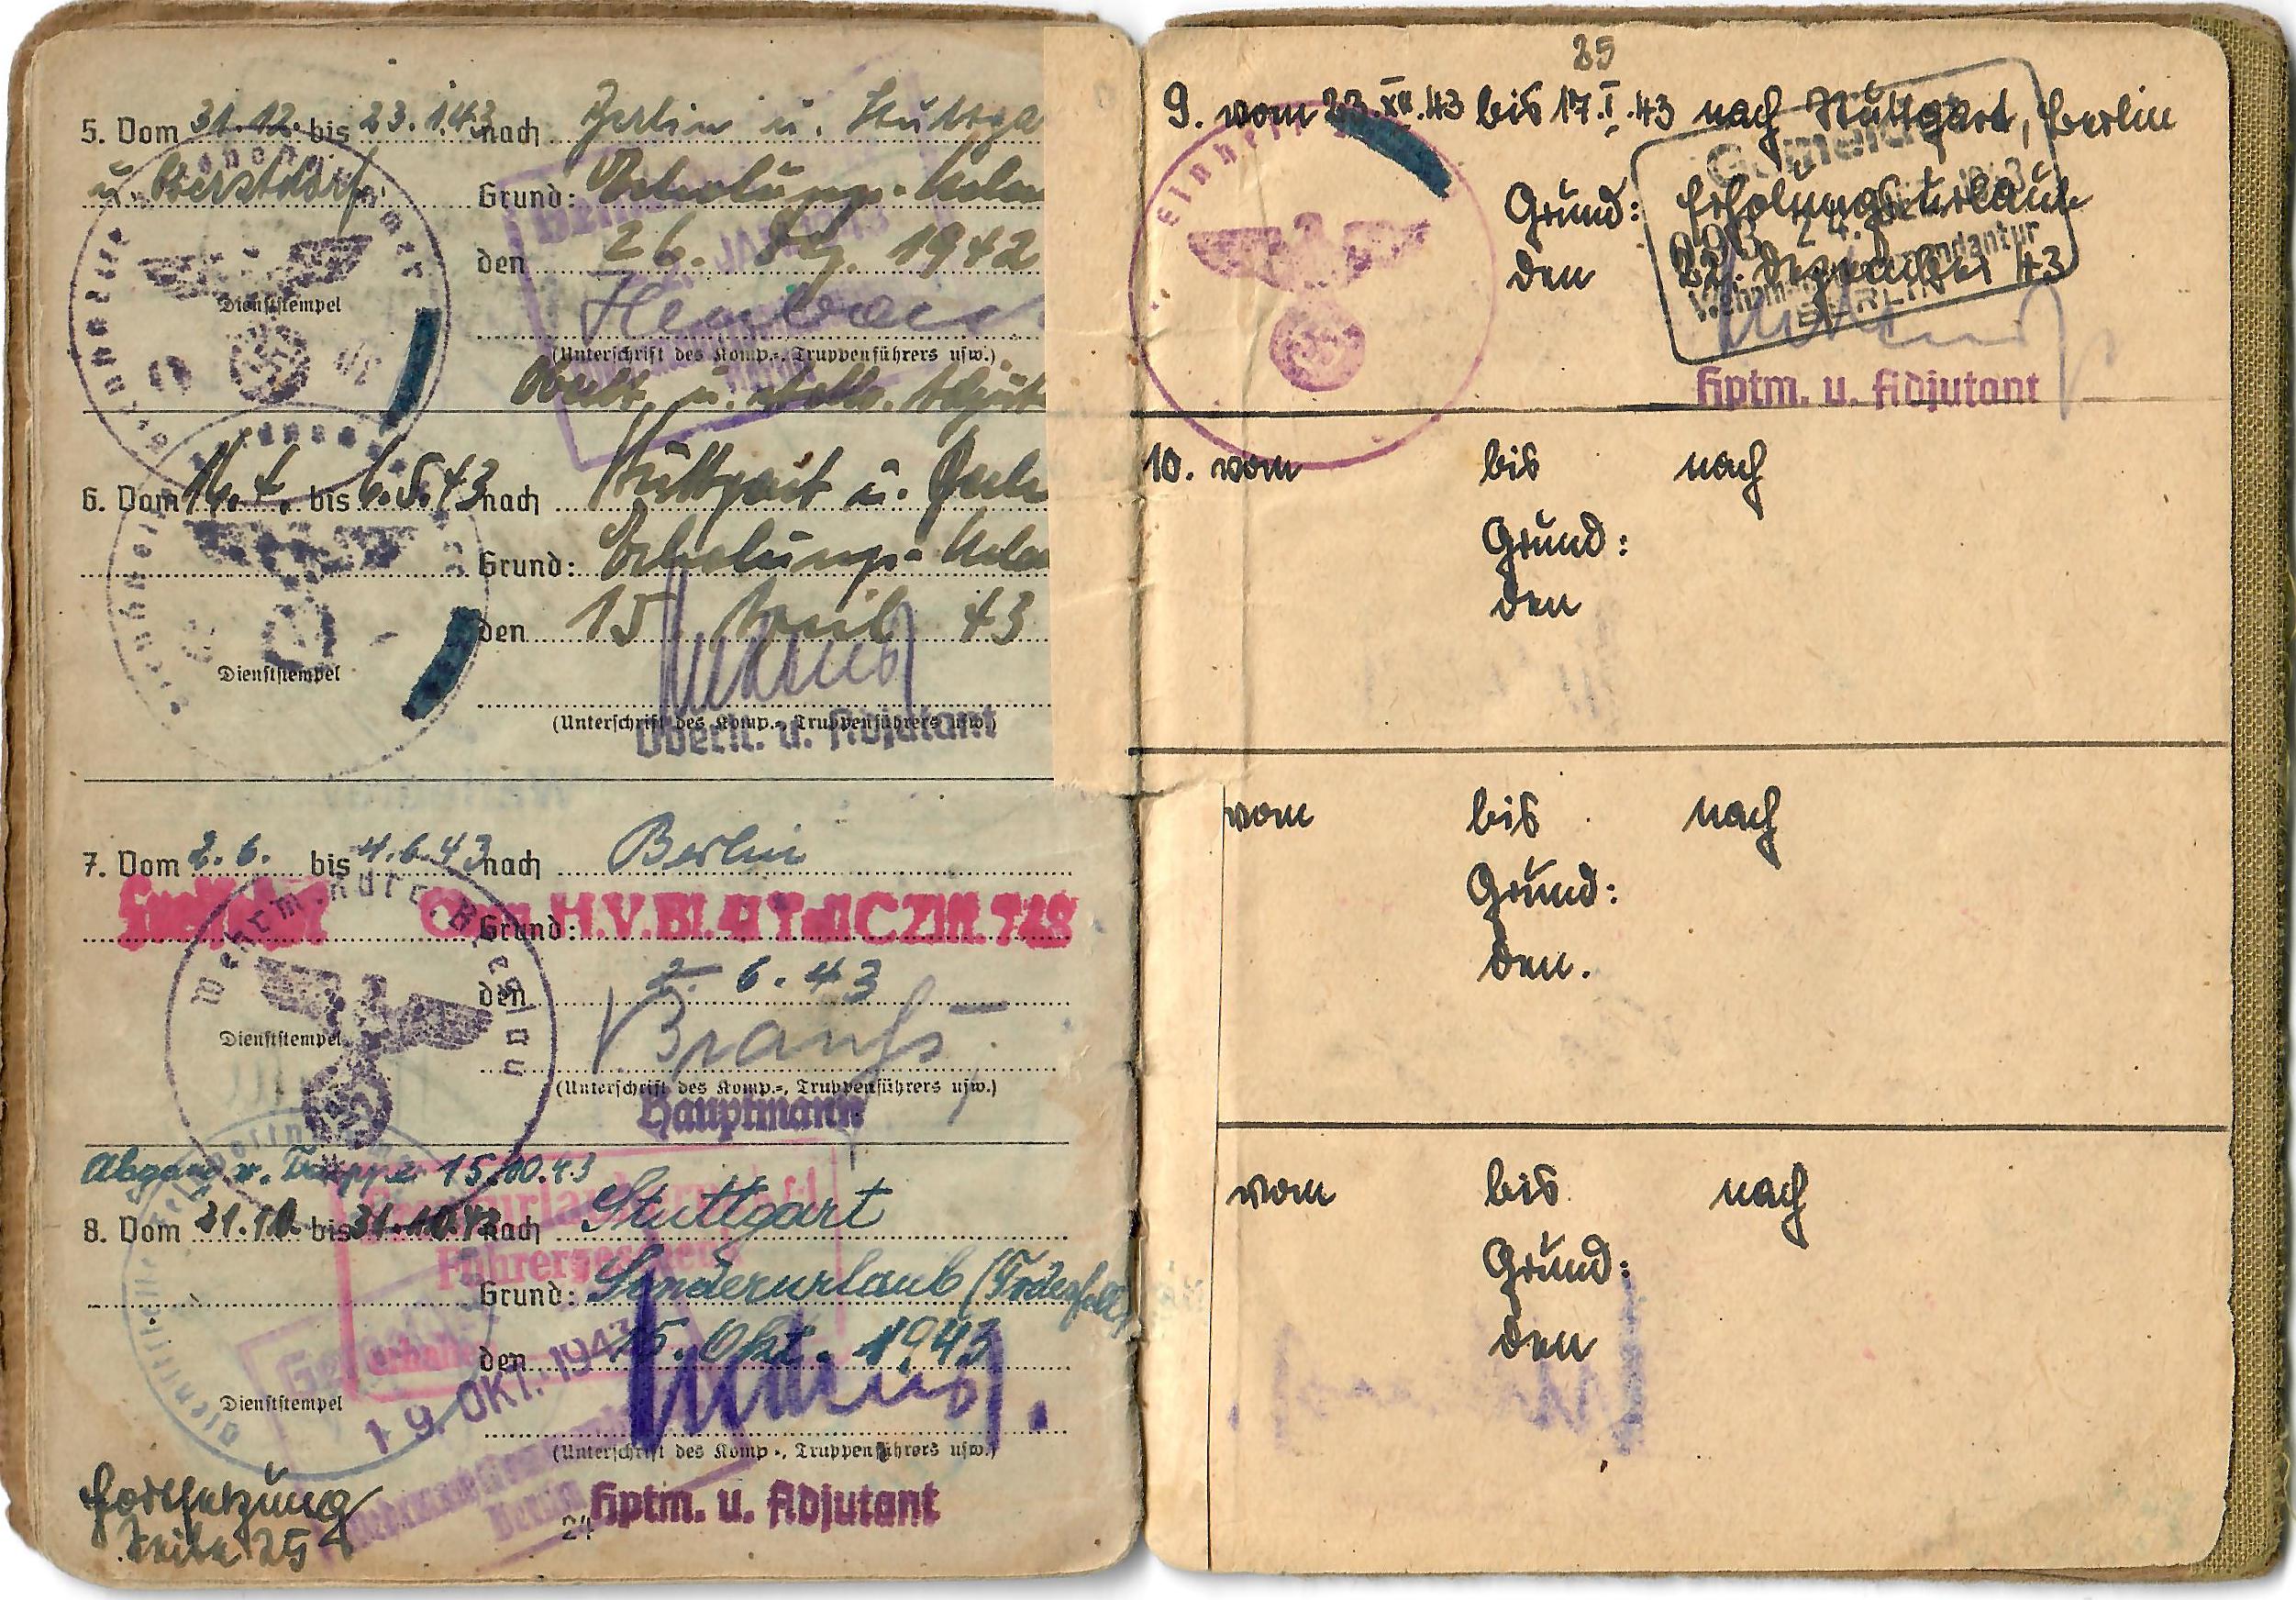 5. Vom 31.12. bis 23.1.43 nach Berlin u. Stuttga
u. Oberstdorf Grund: Erholungs-Urlau
den 26. Dez. 1942
Dienststempel
(Unterschrift des Komp.-, Truppenführers usw.)
6. Vom 14.4. bis 6.5.43 nach Stuttgart u.
Grund: Erholungs-Urlau
den 15. April 43
Dienststempel
(Unterschrift des Komp.-, Truppenführers usw.)
Oberlt. u. Adjutant
7. Vom 2.6. bis 4.6.43 nach Berlin
Grund: H.V.Bl. 41 Teil C Ziff. 748
den 2.6.43
Dienststempel
(Unterschrift des Komp.-, Truppenführers usw.)
Hauptmann
Abgang v. Truppe 15.10.43
8. Vom 21.10. bis 31.10.43 nach Stuttgart
Führergeschenk
Grund: Sonderurlaub (Todesfall)
den 15. Okt. 1943
19. OKT. 1943
Dienststempel
(Unterschrift des Komp.-, Truppenführers usw.)
Hptm. u. Adjutant
Berlin
Fortsetzung
Seite 25
24
25
9. vom 23.XII.43 bis 17.I.43 nach Stuttgart, Berlin
Grund: Erholungsurlaub
den 22. Dezember 43
Wehrmachtkommandantur
BERLIN
Hptm. u. Adjutant
10. vom bis nach
Grund:
den
vom bis nach
Grund:
den.
vom bis nach
Grund:
den